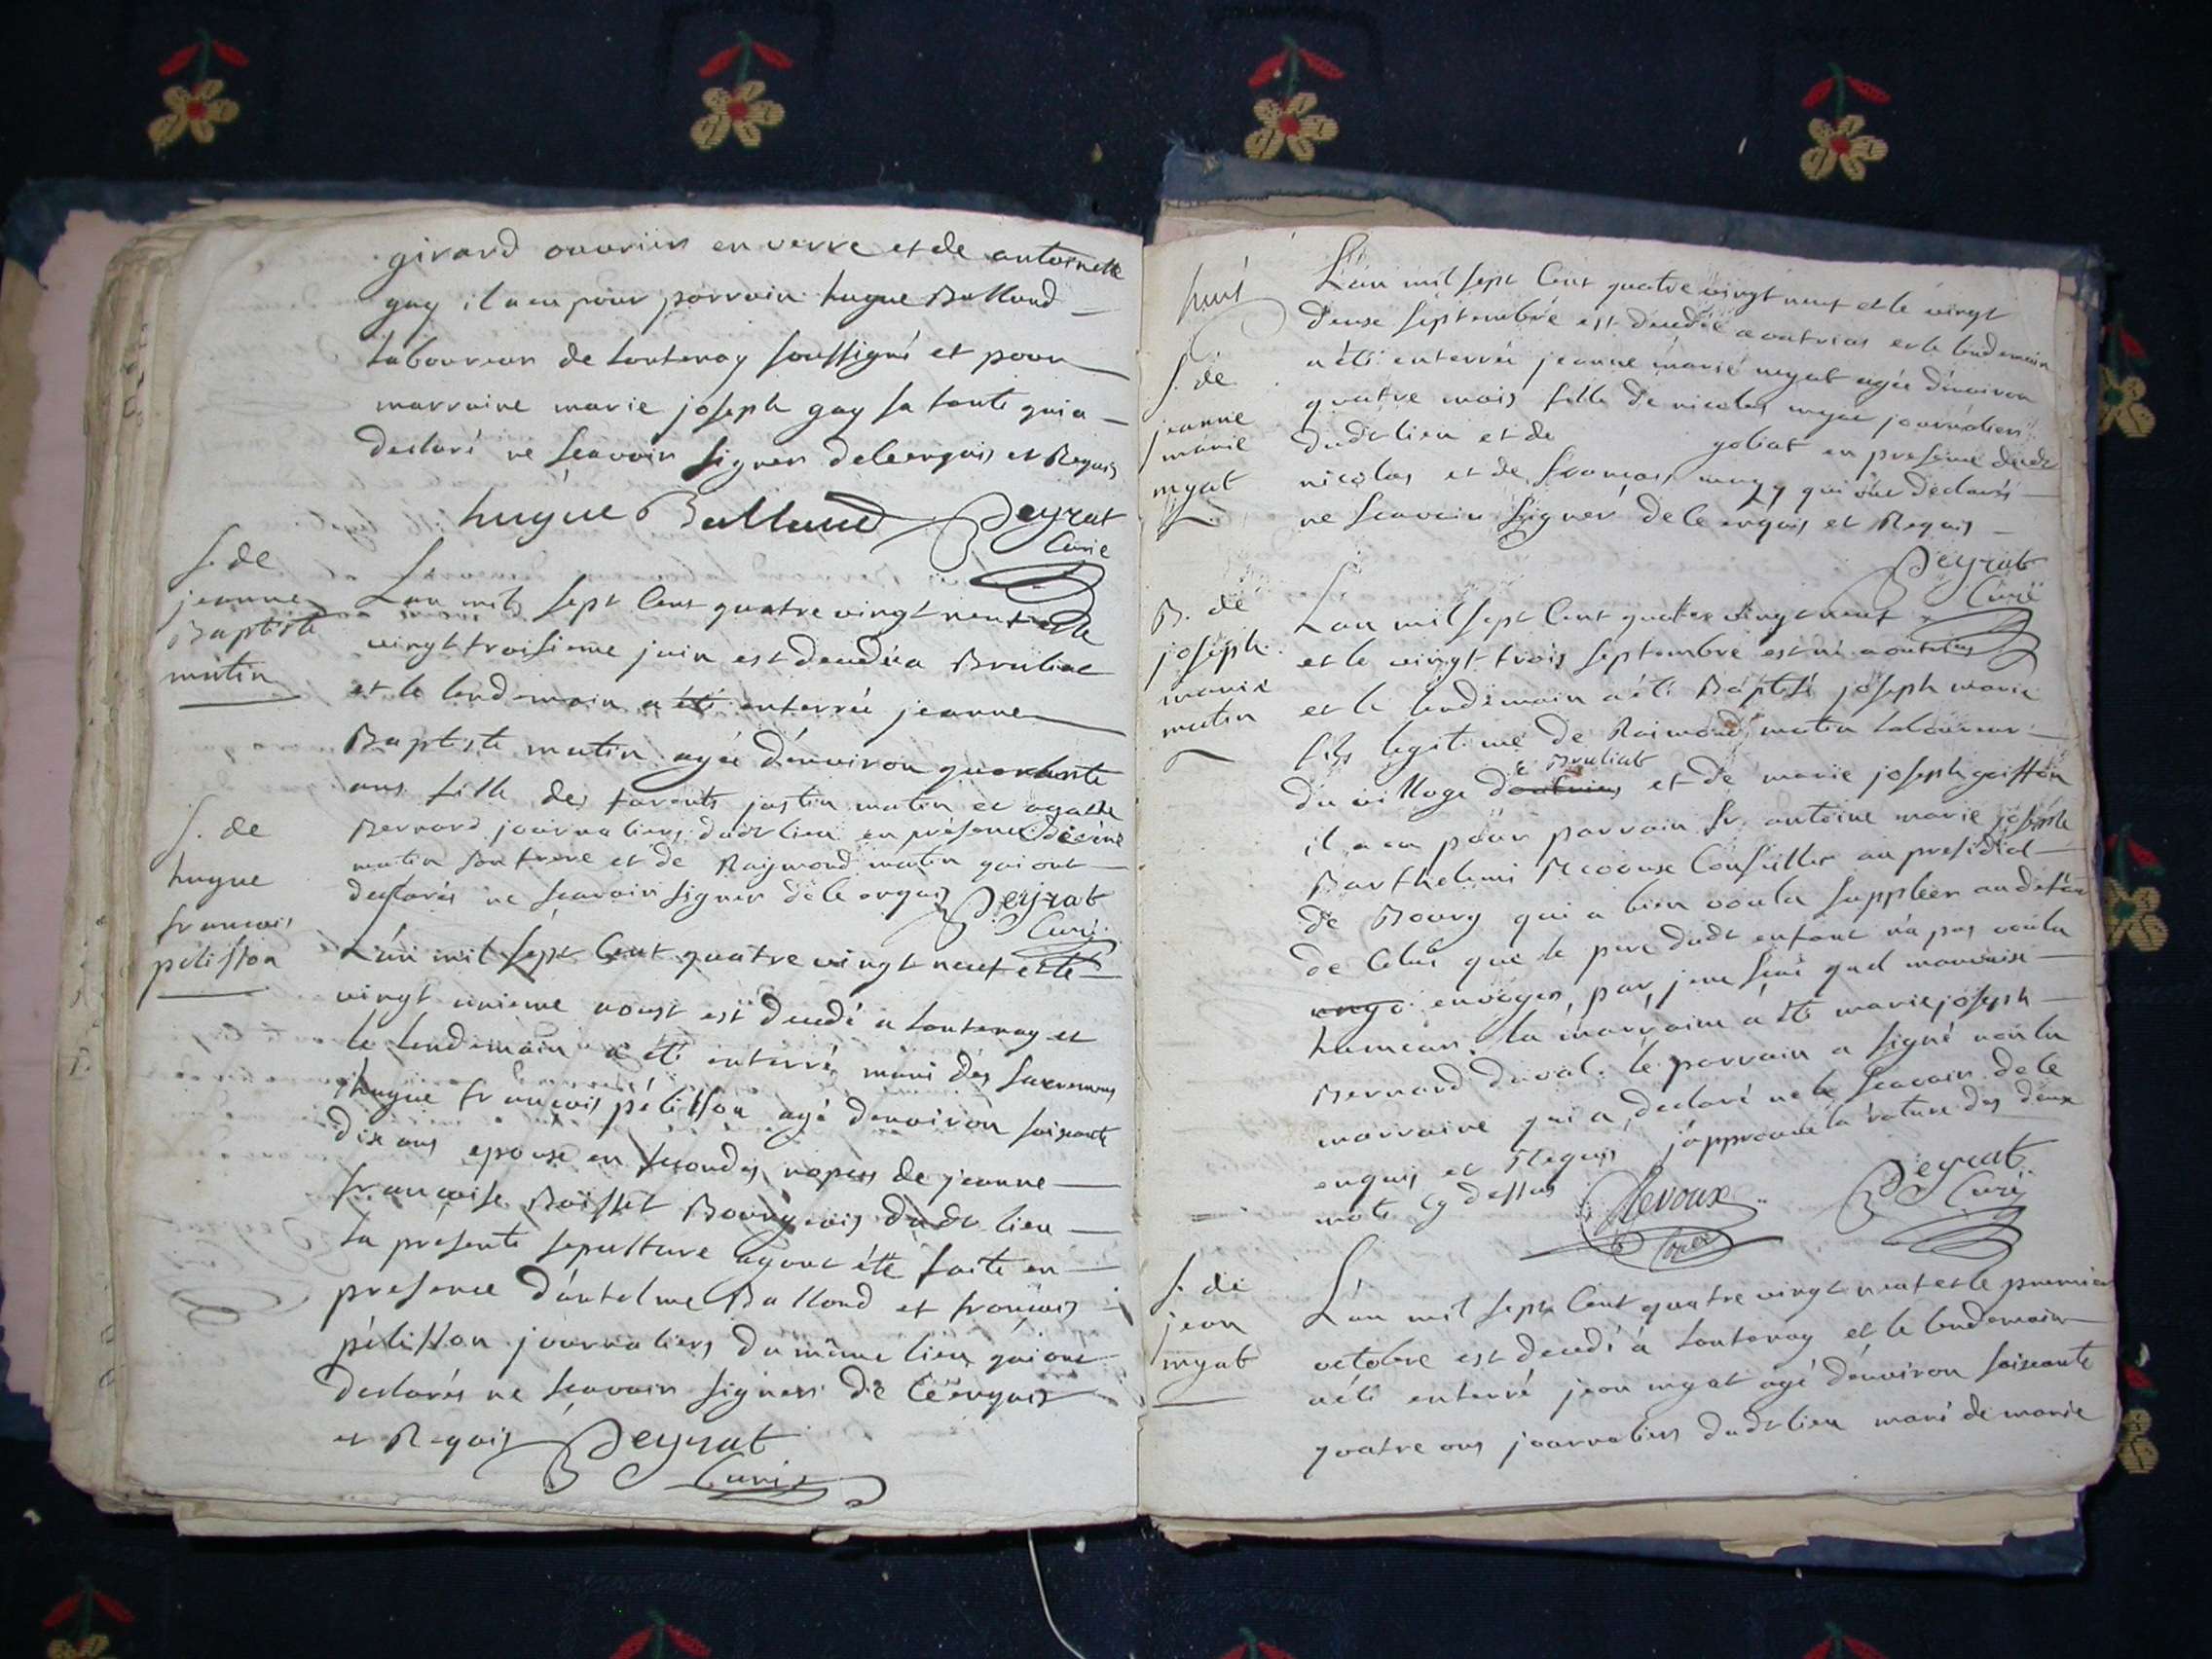 girard ouvrier en verre et de antoinette
gay il a eu pour parrain hugue Balland
laboureur de Lontenay soussigné et pour
marraine marie joseph gay sa tante qui a
declaré ne sçavoir signer de ce enquis et Requis
hugue Balland Peyrat
Curé
s. de
jeanne
Baptiste
mutin
L'an mil sept Cent quatre vingt neuf et le
vingt troisieme juin est decedée a Bruliat
et le lendemain a été enterrée jeanne
Baptiste mutin agée d'environ quarante
ans fille des justin mutin et agathe
Bernard journaliers dudt lieu en présence
mutin son frere et de Raymond mutin qui ont
declarés ne sçavoir signer de ce enquis Peyrat
Curé
s. de
hugue
francois
pélisson
L'an mil sept Cent quatre vingt neuf et le
vingt unieme aoust est decedé a Lontenay et
le lendemain a été enterré muni des sacremens
hugue francois pélisson agé d'environ soixante
dix ans epoux en secondes nopces de jeanne
francoise Boisset Bourgeois dudt lieu
la présente sepulture ayant été faite en
presence d'antelme Balland et francois
pélisson journaliers du même lieu qui ont
declarés ne sçavoir signer de ce enquis
et Requis Peyrat
Curé
huit
s. de
jeanne
marie
myat
L'an mil sept Cent quatre vingt neuf et le vingt
deuse septembre est decedée a outrias et le lendemain
a été enterrée jeanne marie myat agée d'environ
quatre mois fille de nicolas myat journalier
dudt lieu et de goliat en presence dudt
nicolas et de francois qui ont declarés
ne sçavoir signer de ce enquis et Requis
Peyrat
Curé
B. de
joseph
marie
mutin
L'an mil sept Cent quatre vingt neuf
et le vingt trois septembre est né a outrias
et le lendemain a été Baptisé joseph marie
fils legitime de Raimond mutin laboureur
de Bruliat
du village d'outrias et de marie joseph goiffon
il a eu pour parrain sr. antoine marie joseph
Barthelemi Conseiller au presidial
de Bourg qui a bien voulu suppléer au défaut
de celui que le pere dudt enfant n'a pas voulu
envoyer, par je ne sçai quel mauvaise
humeur. la marraine a été marie joseph
Bernard duval. le parrain a signé non la
marraine qui a declaré ne le sçavoir de ce
enquis et Requis j'approuve la rature des deux
mots cy dessus
Peyrat
Curé
s. de
jean
myat
L'an mil sept Cent quatre vingt neuf et le premier
octobre est decedé a Lontenay et le lendemain
a été enterré jean myat agé d'environ soixante
quatre ans journalier dudt lieu mari de marie